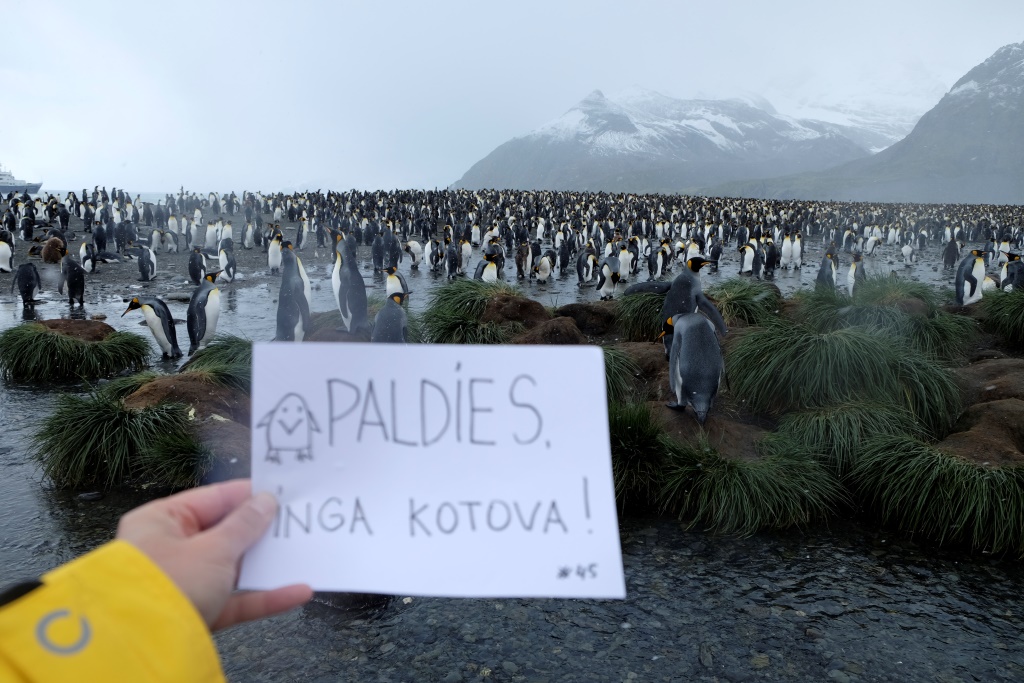 PALDiES,
iNGA KOTOVA!
#45